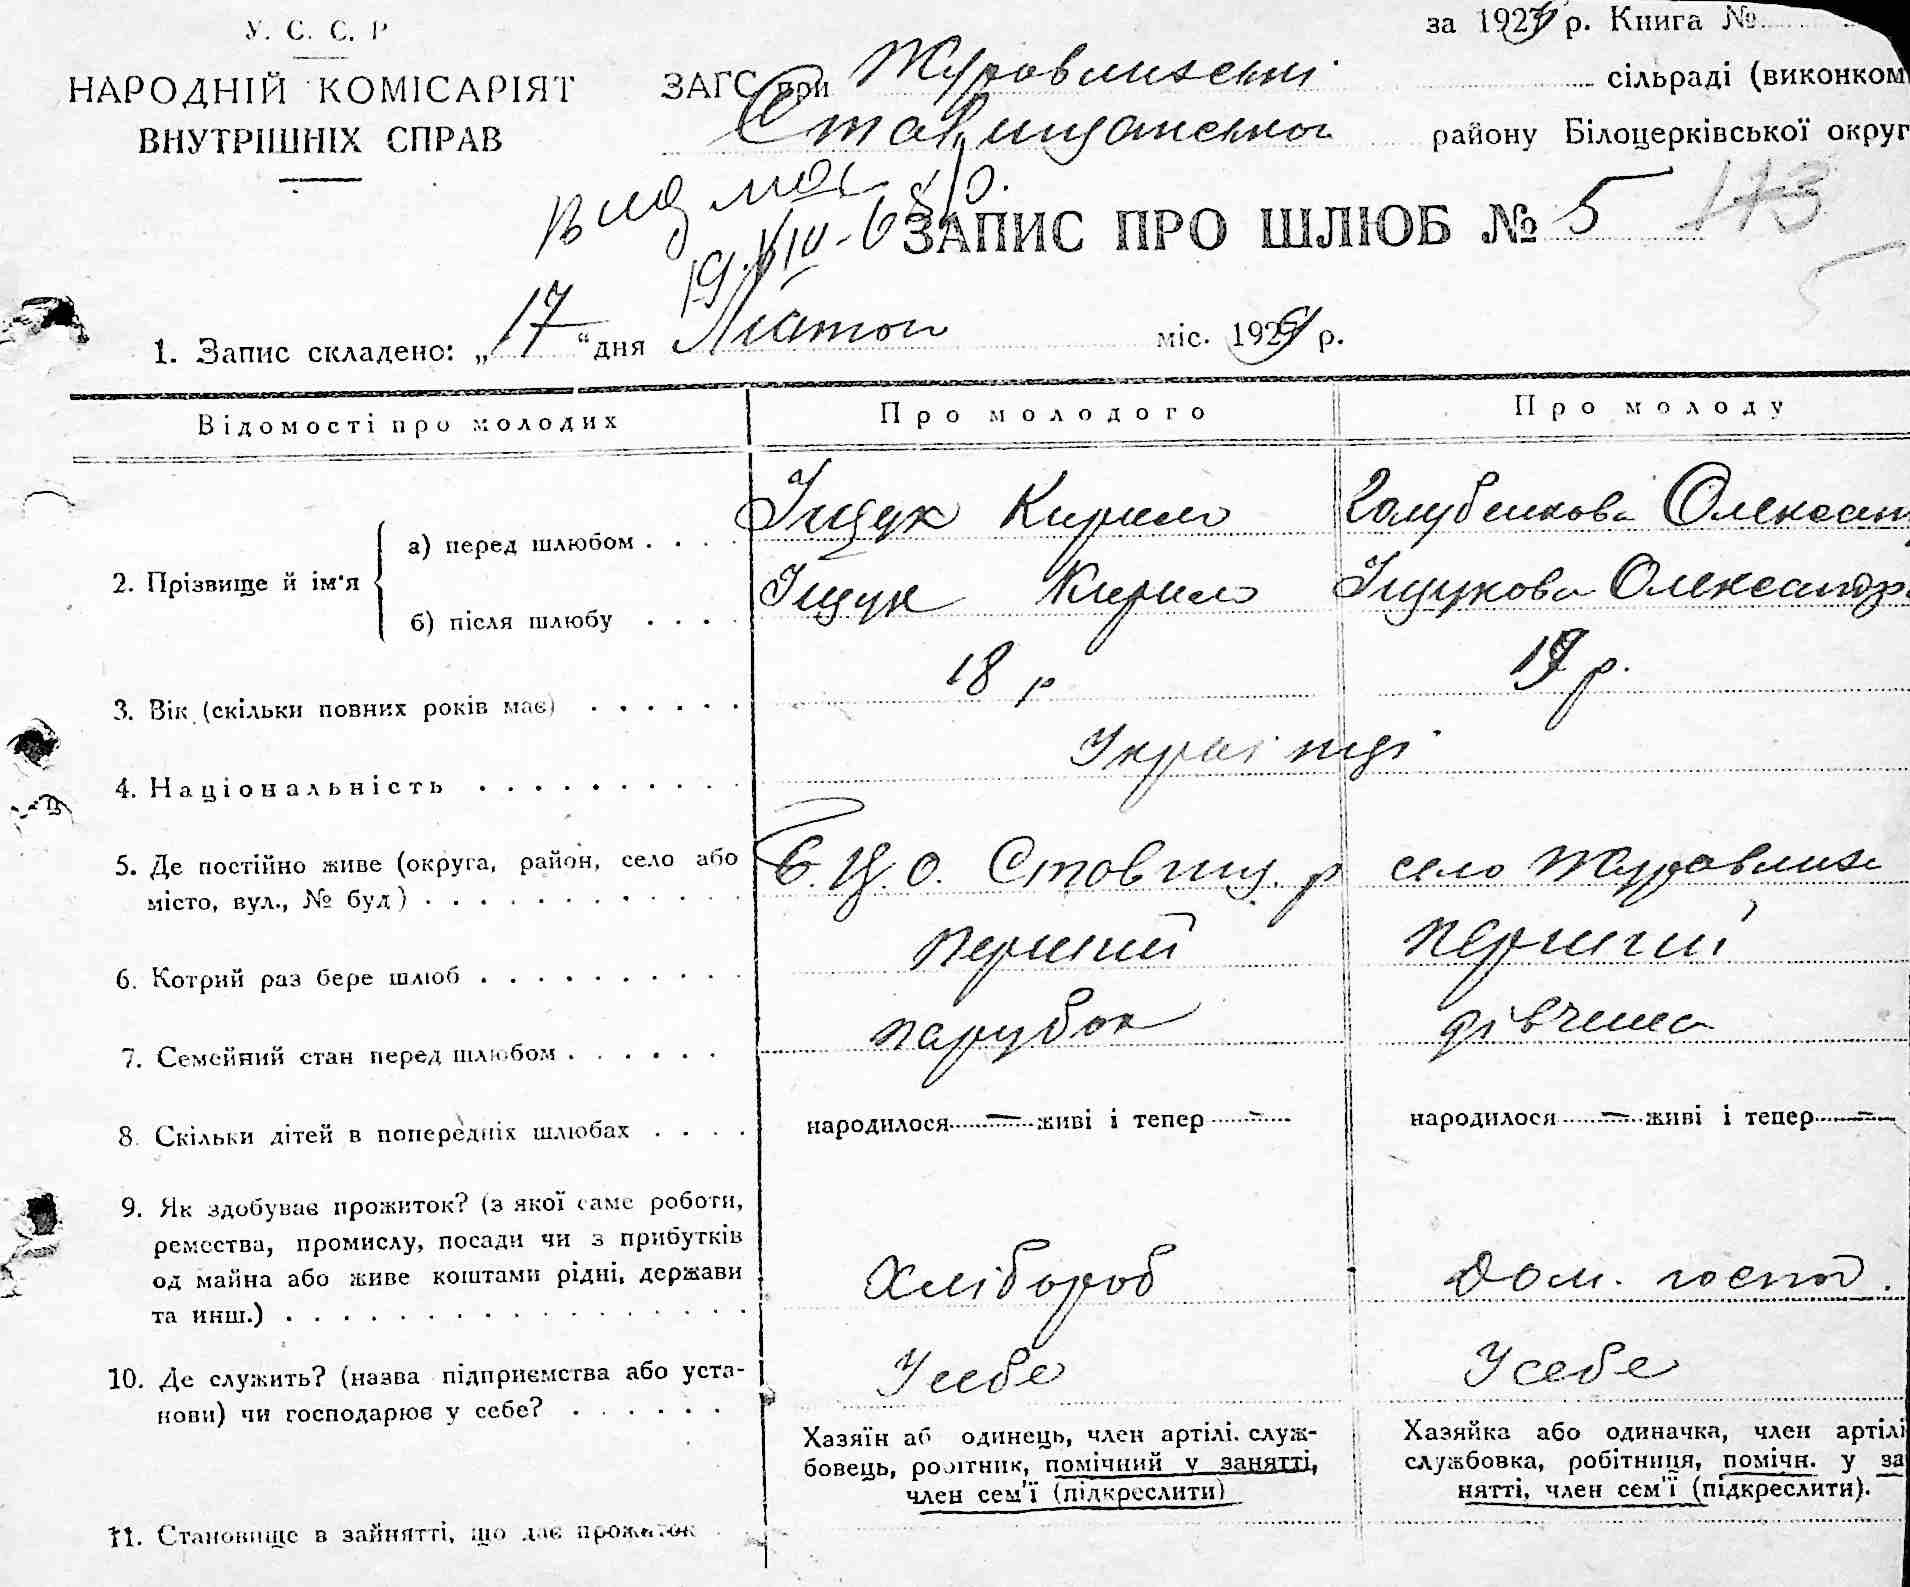 У. С. С. Р
НАРОДНІЙ КОМІСАРІЯТ
ВНУТРІШНІХ СПРАВ
за 192 р. Книга №
ЗАГС при Журавлиженні сільраді (виконком
Ставищанського району Білоцерківської округ
ЗАПИС ПРО ШЛЮБ № 5 173
5
1. Запис складено: „17“ дня Лютого міс. 192 р.
Відомості про молодих
Про молодого
Про молоду
2. Прізвище й ім'я
а) перед шлюбом
Іщук Кирило
Голубенкова Олексан
б) після шлюбу
Іщук Кирило
Іщукова Олександр
3. Вік (скільки повних років має)
18 р
19 р.
4. Національність
Українці
5. Де постійно живе (округа, район, село або
місто, вул., № буд)
Б.Ц.О. Ставищ. р село Журавлиж
6. Котрий раз бере шлюб
перший
перший
7. Семейний стан перед шлюбом
парубок
дівчина
8. Скільки дітей в попередніх шлюбах
народилося — живі і тепер —
народилося — живі і тепер —
9. Як здобуває прожиток? (з якої саме роботи,
ремества, промислу, посади чи з прибутків
од майна або живе коштами рідні, держави
та инш.)
Хлібороб
Дом. господ.
10. Де служить? (назва підприємства або уста-
нови) чи господарює у себе?
У себе
У себе
11. Становище в зайнятті, що дає прожиток
Хазяїн аб одинець, член артілі, служ-
бовець, робітник, помічний у занятті,
член сем'ї (підкреслити)
Хазяйка або одиначка, член артілі
службовка, робітниця, помічн. у за
нятті, член сем'ї (підкреслити).